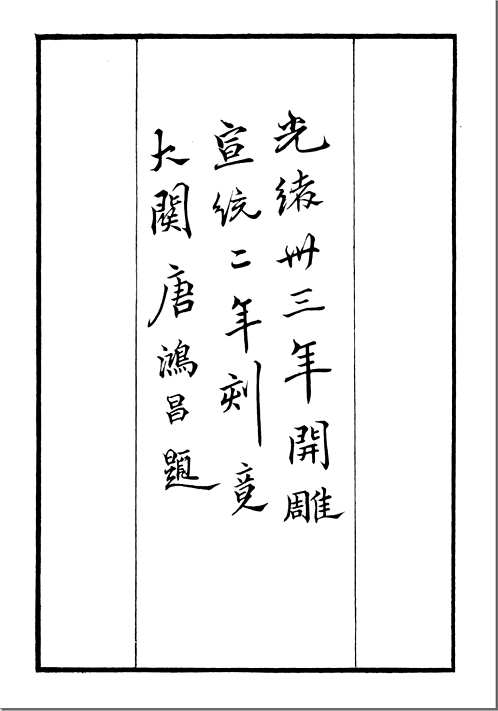 光緒卅三年開雕
宣統二年刻竟
大關唐鴻昌題